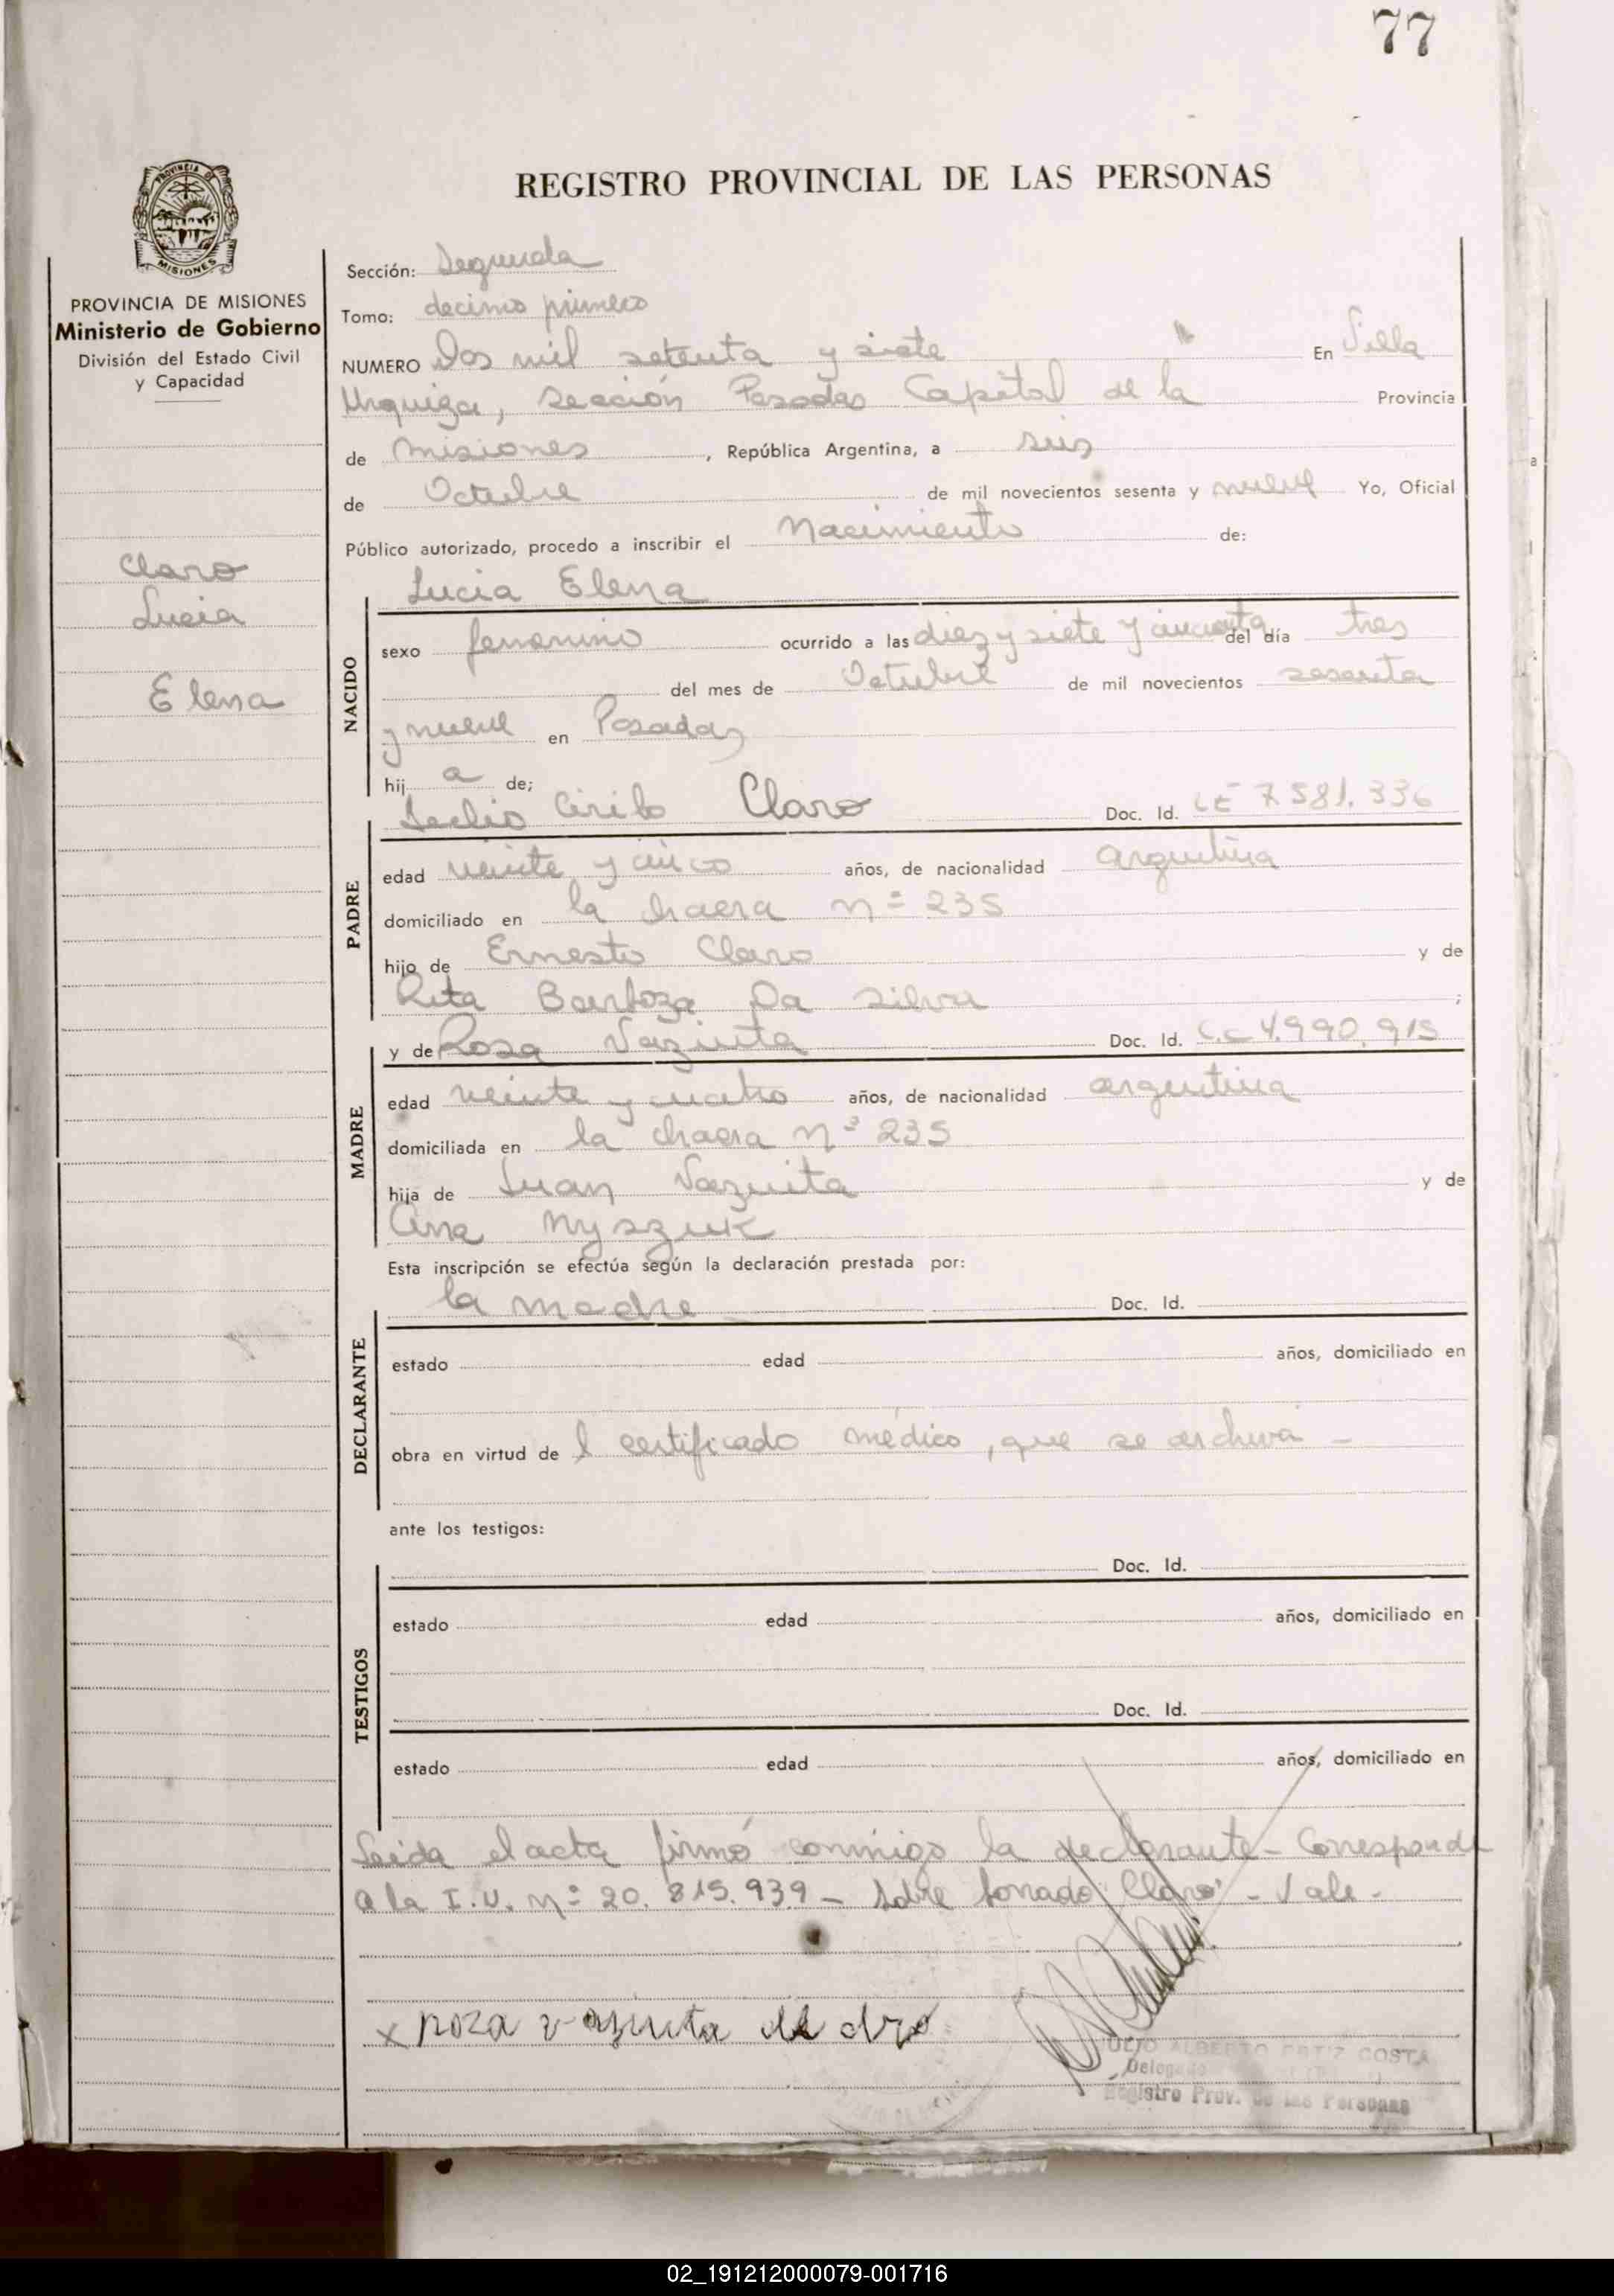 77
REGISTRO PROVINCIAL DE LAS PERSONAS
PROVINCIA DE MISIONES
Ministerio de Gobierno
División del Estado Civil
y Capacidad
Claro
Lucia
Elena
Sección: Segunda
Tomo: decimo primero
NUMERO Dos mil setenta y siete En Villa
Urquiza, sección Posadas Capital de la Provincia
de Misiones, República Argentina, a seis
de Octubre de mil novecientos sesenta y nueve Yo, Oficial
Público autorizado, procedo a inscribir el Nacimiento de:
Lucia Elena
NACIDO
sexo femenino ocurrido a las diez y siete y cincuenta del día tres
del mes de Octubre de mil novecientos sesenta
y nueve en Posadas
hij a de;
Cirilo Claro Doc. Id. LE 7.581.336
PADRE
edad veinte y cinco años, de nacionalidad argentina
domiciliado en la chacra nº 235
hijo de Ernesto Claro y de
Rita Barboza Da Silva ;
y de Rosa Vazuita Doc. Id. C.C 4.990.915
MADRE
edad veinte y cuatro años, de nacionalidad argentina
domiciliada en la chacra nº 235
hija de Juan Vazuita y de
Ana Myszuk
Esta inscripción se efectúa según la declaración prestada por:
la madre Doc. Id.
DECLARANTE
estado edad años, domiciliado en
obra en virtud de l certificado médico, que se archiva -
ante los testigos:
Doc. Id.
TESTIGOS
estado edad años, domiciliado en
Doc. Id.
estado edad años, domiciliado en
Leida el acta firmó conmigo la declarante - Corresponde
a la I.U. nº 20.815.939 - Sobre borrado "Claro" - Vale -
x rosa vazuita de
JULIO ALBERTO ORTIZ COSTA
Delegado
Registro Prov. de las Personas
02_191212000079-001716